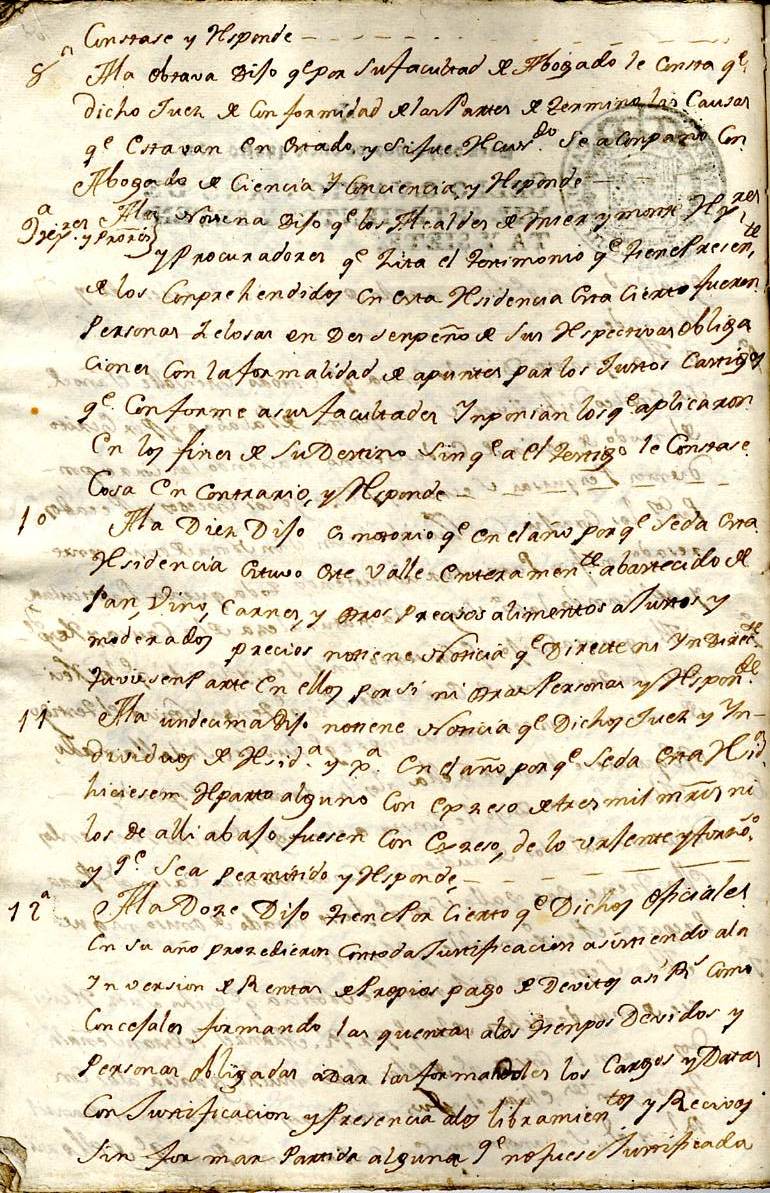 Constase y Responde
8ª Ala Obtava Dijo qe por su facultad de Abogado le Consta qe
dicho Juez de Conformidad de las Partes determino las Causas
qe Estavan En Estado, y si fue Recusdo Se aconpaño Con
Abogado de Ciencia Y Conciencia, y Responde
9ª Ala Novena Dijo qe los Alcaldes de Mier y monte Rexres
y Procuradores qe Zita el testimonio qe tiene Presente,
de los Conprehendidos En esta Residencia Esta Cierto fueron
Personas Zelosas en Desenpeño de sus Respectivas obliga
ciones Con la formalidad de apuntes par los Justos Castigos
qe Conforme a sus facultades Ynponian los qe aplicaron
En los fines de Su Destino Sin qe a el testigo le Constase
Cosa En Contrario, y Responde
10 Ala Diez Dijo es notorio qe en el año por qe Seda Esta
Residencia Estuvo Este Valle Enteramente abastecido de
Pan, Vino, Carnes, y otros precisos alimentos a Justos y
moderados precios no tiene Noticia qe Directe ni Yn Directe
tuviesen Parte En ellos por Si ni otras Personas y Responde
11 Ala undecima Dijo no tiene Noticia qe Dichos Juez y Yn-
dividuos de Residª y pª En el año por qe Seda Esta Resida
hiciesem Reparto alguno Con expreso de tres mil mrs ni
los de alli abajo fuesen Con Expreso, de lo Urjente y forzoso
y qe Sea permitido y Responde
12ª Ala Doze Dijo tiene Por Cierto qe Dichos Oficiales
En su año prozedieron Con toda Justificacion asistiendo ala
Yn version de Rentas de Propios pago de Devitos asi Rs Como
Concejales formando las quentas alos tienpos Devidos y
Personas obligadas a dar las formandoles los Cargos y Datas
Con Justificacion y Presencia alos libramientos y Recivos
Sin formar Partida alguna qe no fuese Justificada